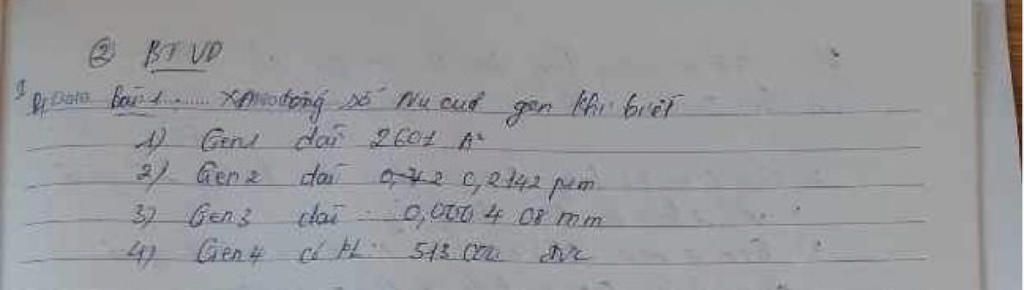 ② BT VD
Bài 1 ...... số Nu của gen khi biết
1) Gen 1 dài 2601 A°
2) Gen 2 dài 0,2142 µm
3) Gen 3 dài 0,000408 mm
4) Gen 4 có KL 513 000 đvc